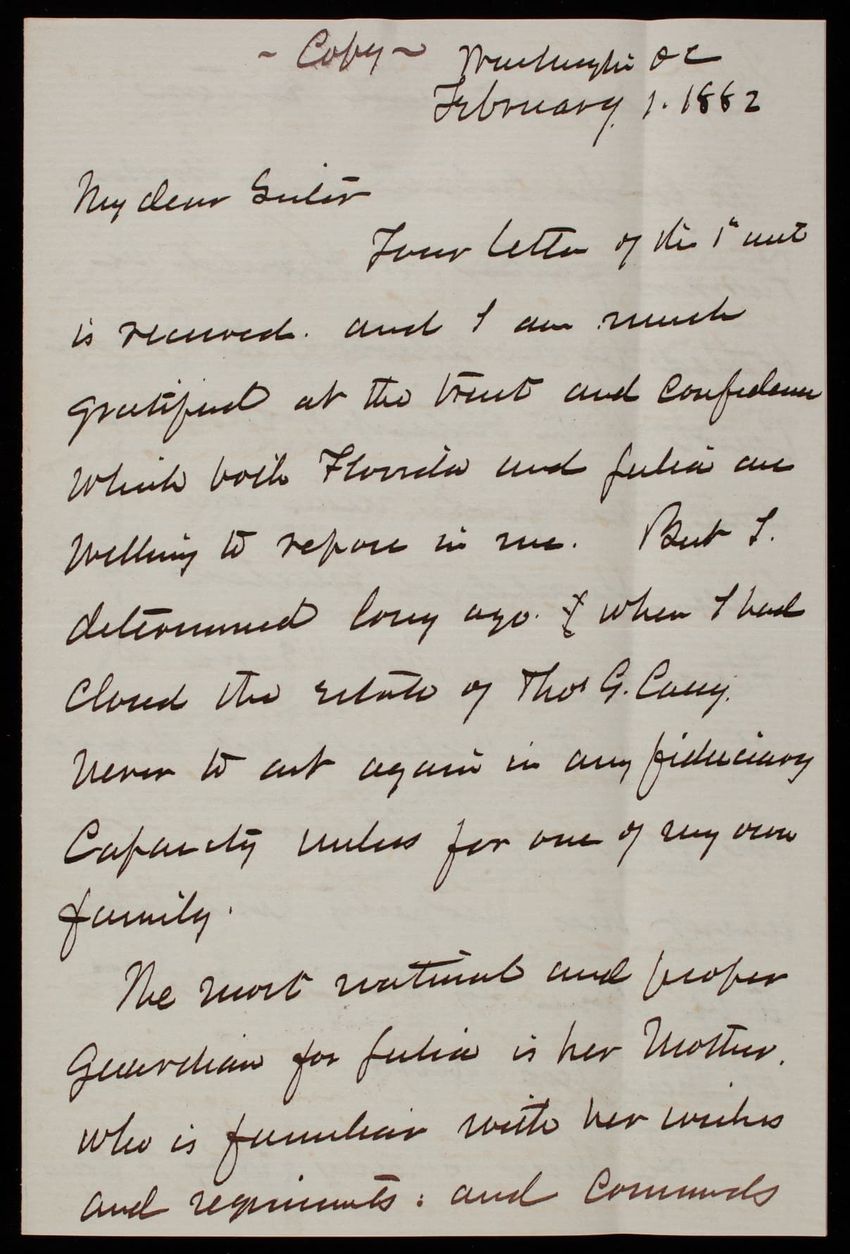 ~ Copy ~ Washington DC
February 1. 1882
My dear Sister
Your letter of the 1st
is received. and I am much
gratified at the trust and confidence
which both Florida and Julia are
willing to repose in me. But I.
determined long ago. & when I had
closed the estate of Thos G. Casey.
never to act again in any fiduciary
Capacity unless for one of my own
family.
The most natural and proper
Guardian for Julia is her Mother.
who is familiar with her wishes
and requirments: and commands